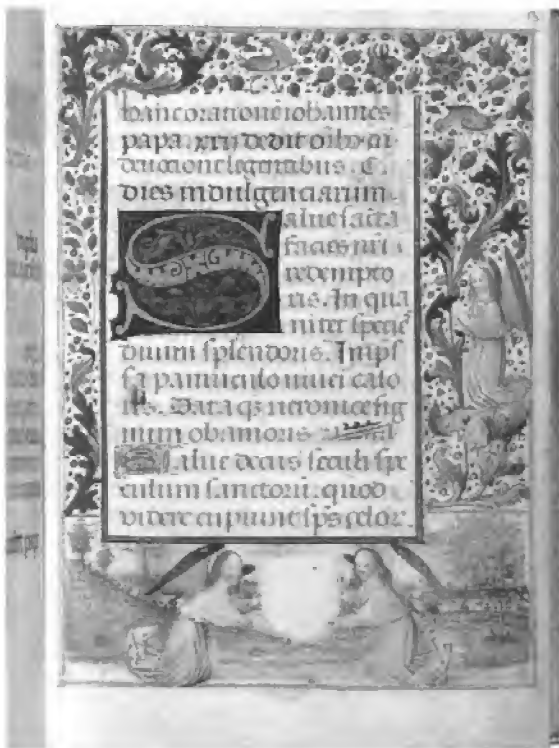 hanc orationē iohannes
papa xxii dedit oībꝫ
deuocione legentibus. C.
dies indulgenciarum
Salue sācta
facies nrī
redempto
ris. In qua
nitet specieˢ
diuini splendoris. Imp̄s
sa panniculo niuei calo
ris. Dataqꝫ ueronice sig
num ob amoris
Salue decus seculi spe
culum sanctorū. quod
videre cupiunt sp̄s celor